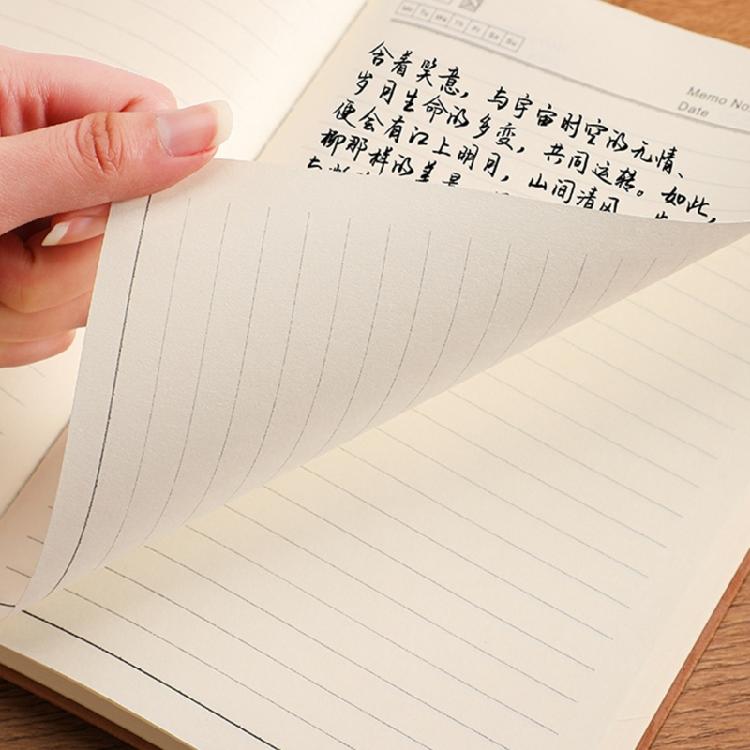 Mo Tu We Th Fr Sa Su
Memo No
Date
含着笑意，与宇宙时空的无情、
岁月生命的多变，共同运转。如此，
便会有江上明月，山间清风
柳那样的美景